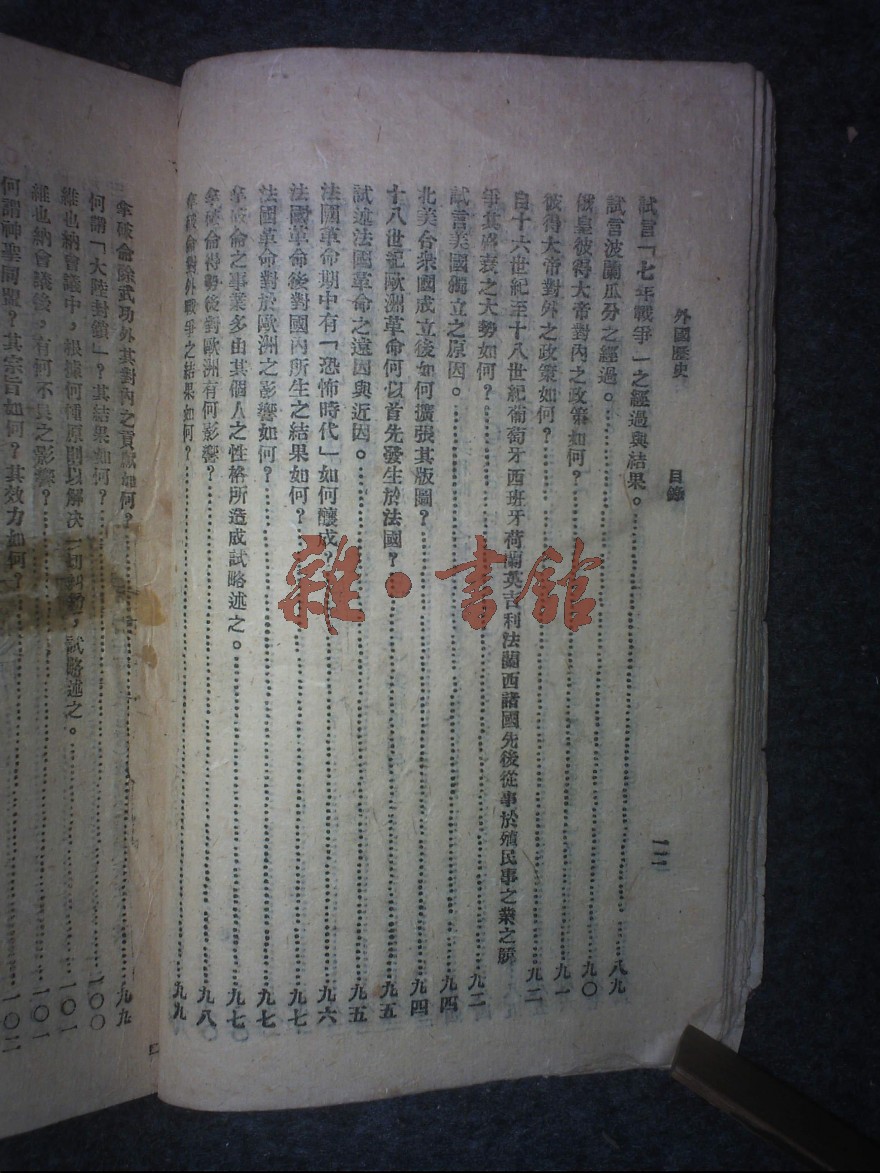 外國歷史 目錄
試言「七年戰爭」之經過與結果。……八九
試言波蘭瓜分之經過。……九〇
俄皇彼得大帝對內之政策如何？……九一
彼得大帝對外之政策如何？……九二
自十六世紀至十八世紀葡萄牙西班牙荷蘭英吉利法蘭西諸國先後從事於殖民事之業之競
爭其盛衰之大勢如何？……九三
試言美國獨立之原因。……九四
北美合衆國成立後如何擴張其版圖？……九四
十八世紀歐洲革命何以首先發生於法國？……九五
試述法國革命之遠因與近因。……九五
法國革命期中有「恐怖時代」如何釀成？……九六
法國革命後對國內所生之結果如何？……九七
法國革命對於歐洲之影響如何？……九七
拿破侖之事業多由其個人之性格所造成試略述之。……九七
拿破侖得勢後對歐洲有何影響？……九八
拿破侖對外戰爭之結果如何？……九九
拿破侖除武功外其對內之貢獻如何？……九九
何謂「大陸封鎖」？其結果如何？……一〇〇
維也納會議中，根據何種原則以解決一切糾紛，試略述之。……一〇一
維也納會議後，有何不良之影響？……一〇一
何謂神聖同盟？其宗旨如何？其效力如何？……一〇二
三
雜·書館